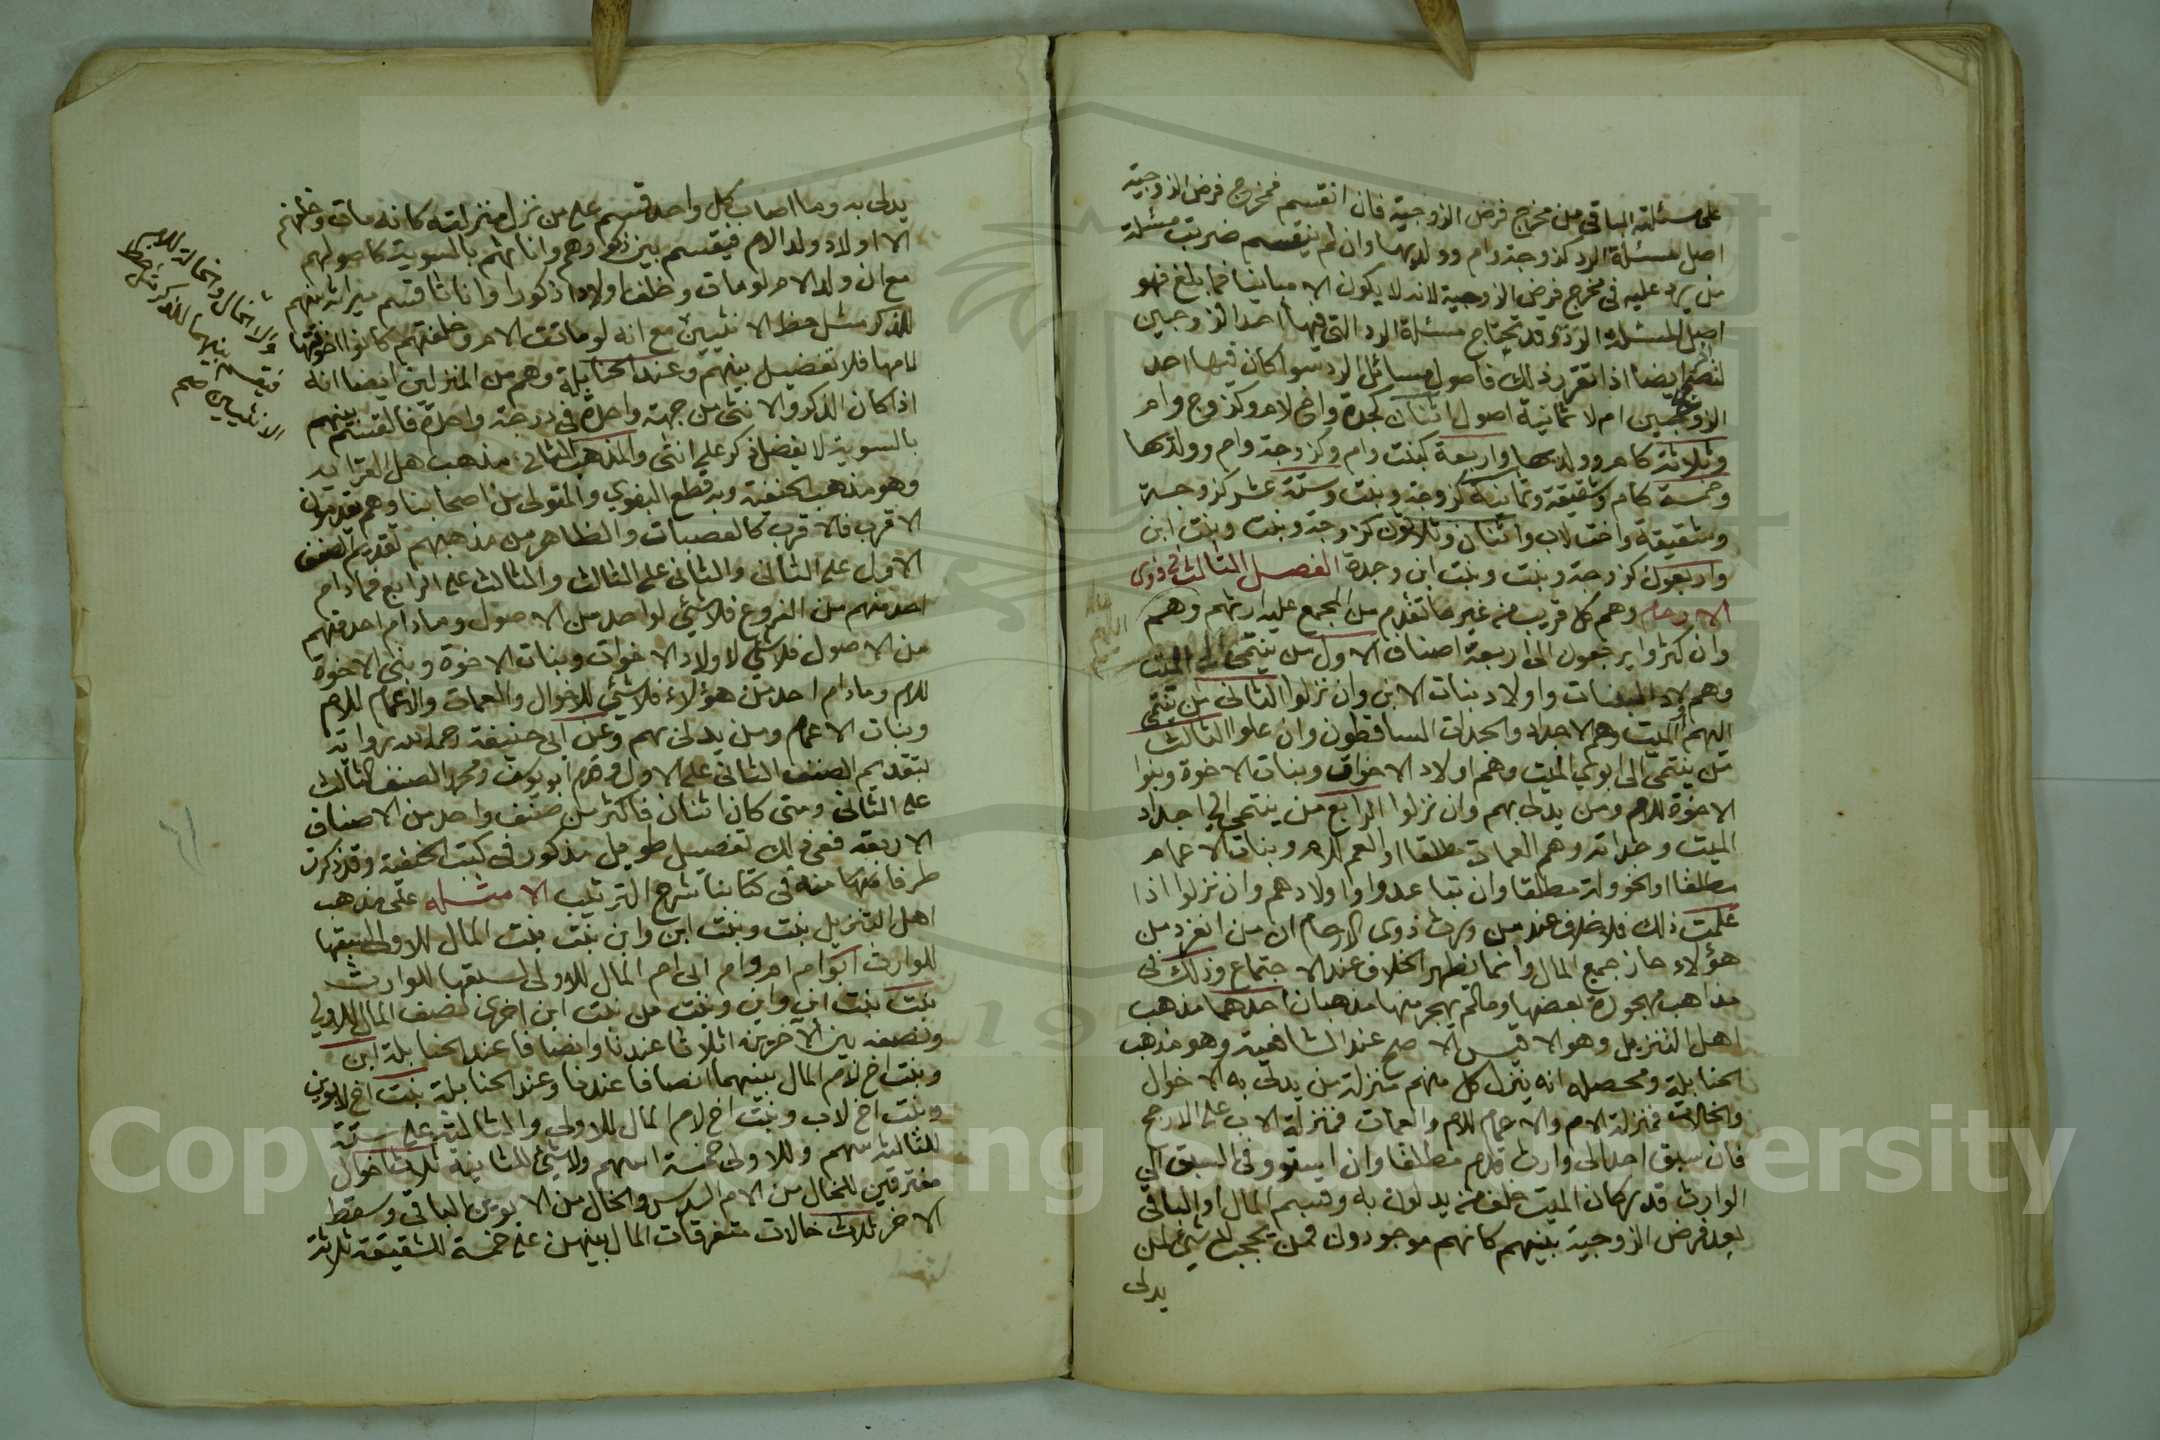 على مسئلة الباقي من مخرج فرض الزوجية فان انقسم فمخرج فرض الزوجية
اصل لمسئلة الرد كزوجة وام وولديها وان لم ينقسم ضربت مسئلة
من يرد عليه في مخرج فرض الزوجية لانه لا يكون الا مباينا فما بلغ فهو
اصل لمسئلة الرد وقد تحتاج مسئلة الرد التي فيها احد الزوجين
لتصحيح ايضا اذا تقرر ذلك فاصول مسائل الرد سوا كان فيها احد
الزوجين ام لا ثمانية اصول اثنان كجدة واخ لام وكزوج وام
وثلاثة كام وولديها واربعة كبنت وام وكزوجة وام وولديها
وخمسة كام وشقيقة وثمانية كزوجة وبنت وستة عشر كزوجة
وشقيقة واخت لاب واثنان وثلاثون كزوجة وبنت وبنت ابن
واربعون كزوجة وبنت وبنت ابن وجدة الفصل الثالث في ذوي
الارحام وهم كل قريب من غير ما تقدم من المجمع عليه ارثهم وهم
وان كثروا يرجعون الى اربعة اصناف الاول من ينتمي الى الميت
وهم اولاد البنات واولاد بنات الابن وان نزلوا الثاني من ينتمي
اليهم الميت وهم الاجداد والجدات الساقطون وان علوا الثالث
من ينتمي الى ابوي الميت وهم اولاد الاخوات وبنات الاخوة وبنوا
الاخوة للام ومن يدلي بهم وان نزلوا الرابع من ينتمي الى اجداد
الميت وجداته وهم العمات مطلقا او العم للام وبنات الاعمام
مطلقا او الخوولة مطلقا وان تباعدوا واولادهم وان نزلوا اذا
علمت ذلك فلا خلاف عند من ورث ذوي الارحام ان من انفرد من
هؤلاء حاز جميع المال وانما يظهر الخلاف عند الاجتماع وذلك في
مذاهب مهجورة بعضها وما لم يهجر منها مذهبان احدهما مذهب
اهل التنزيل وهو الاقيس الاصح عند الشافعية وهو مذهب
الحنابلة ومحصله انه ينزل كل منهم منزلة من يدلي به الاخوال
والخالات فمنزلة الام والاعمام للام والعمات فمنزلة الاب على الارجح
فان سبق احد الى وارث قدم مطلقا وان استووا في السبق الى
الوارث قدر كان الميت خلف من يدلون به وقسم المال او الباقي
بعد فرض الزوجية بينهم كانهم موجودون فمن يحجب لا شيء لمن
يدلى
يدلى به وما اصاب كل واحد قسم على من نزل منزلته كانه مات وخلفهم
الا اولاد ولد الام فيقسم بين ذكورهم واناثهم بالسوية كاصولهم
مع ان ولد الام لو مات وخلف اولادا ذكورا واناثا قسم ميراثه بينهم
للذكر مثل حظ الانثيين مع انه لو ماتت الام وخلفتهم كانوا اخوتها
لامها فلا تفضيل بينهم وعند الحنابلة وهم من المنزلين ايضا انه
اذا كان الذكر والانثى من جهة واحدة في درجة واحدة فالقسم بينهم
بالسوية لا يفضل ذكر على انثى والمذهب الثاني مذهب اهل القرابة
وهو مذهب الحنفية وبه قطع البغوي والمتولي من اصحابنا وهم يقدمون
الاقرب فالاقرب كالعصبات والظاهر من مذهبهم تقديم الصنف
الاول على الثاني والثاني على الثالث والثالث على الرابع فما دام
احد منهم من الفروع فلا شيء لواحد من الاصول وما دام احد منهم
من الاصول فلا شيء لاولاد الاخوات وبنات الاخوة وبني الاخوة
للام وما دام احد من هؤلاء فلا شيء للاخوال والعمات والاعمام للام
وبنات الاعمام ومن يدلى بهم وعن ابي حنيفة رحمه الله رواية
بتقديم الصنف الثاني على الاول وقدم ابو يوسف ومحمد الصنف الثالث
على الثاني ومتى كان اثنان فاكثر من صنف واحد من الاصناف
الاربعة ففي ذلك تفصيل طويل مذكور في كتب الحنفية وقد ذكرت
طرفا منه في كتابنا شرح الترتيب الامثلة على مذهب
اهل التنزيل بنت وبنت ابن وابن بنت بنت المال للاولى لسبقها
للوارث ابو ام ام وام ابي ام المال للاولى لسبقها للوارث
بنت بنت ابن وابن وبنت من بنت ابن اخرى نصف المال للاولى
ونصفه بين الآخرين اثلاثا عندنا وانصافا عند الحنابلة ابن
وبنت اخ لام المال بينهما انصافا عندنا وعند الحنابلة بنت اخ لابوين
وبنت اخ لاب وبنت اخ لام المال للاولى والثالثة على ستة
للثالثة سهم وللاولى خمسة اسهم ولا شيء للثانية ثلاثة اخوال
مفترقين للخال من الام السدس والخال من الابوين الباقي وسقط
الاخر ثلاث خالات متفرقات المال بينهن على خمسة للشقيقة ثلاثة
والا الخال والخالة للام
فيقسم بينهما للذكر مثل حظ
الانثيين صح
Copyright © King Saud University